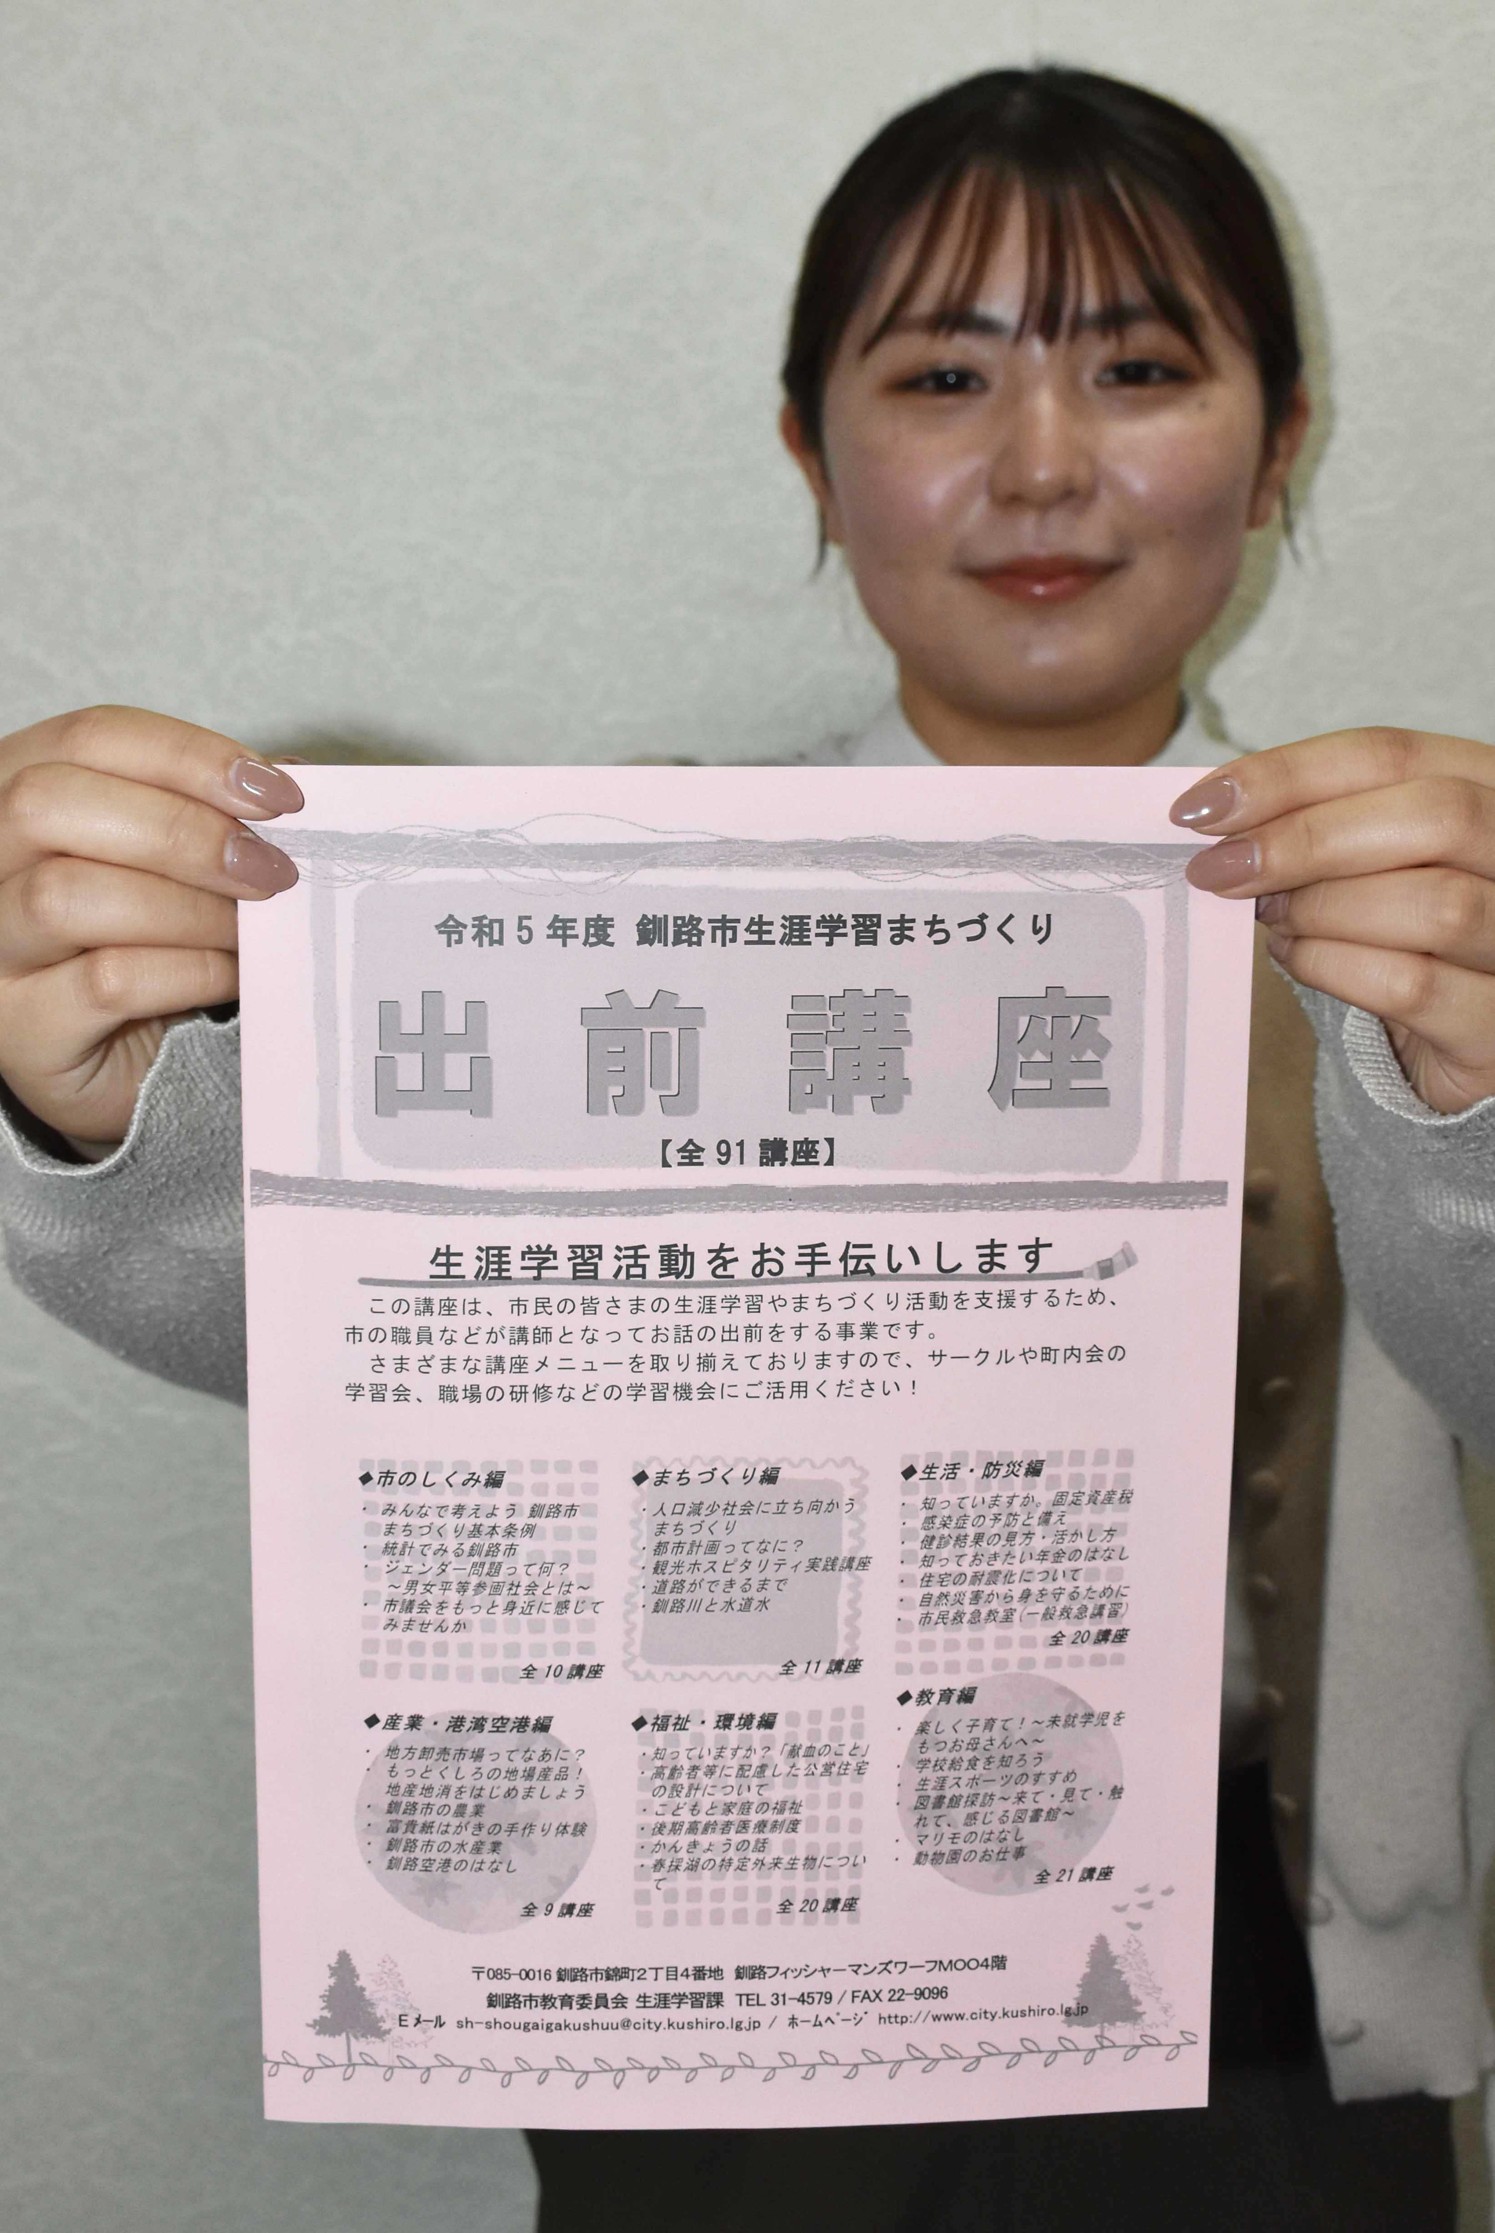 令和5年度 釧路市生涯学習まちづくり
出前講座
【全91講座】
生涯学習活動をお手伝いします
この講座は、市民の皆さまの生涯学習やまちづくり活動を支援するため、
市の職員などが講師となってお話の出前をする事業です。
さまざまな講座メニューを取り揃えておりますので、サークルや町内会の
学習会、職場の研修などの学習機会にご活用ください！
◆市のしくみ編
・みんなで考えよう 釧路市
まちづくり基本条例
・統計でみる釧路市
・ジェンダー問題って何？
～男女平等参画社会とは～
・市議会をもっと身近に感じて
みませんか
全10講座
◆まちづくり編
・人口減少社会に立ち向かう
まちづくり
・都市計画ってなに？
・観光ホスピタリティ実践講座
・道路ができるまで
・釧路川と水道水
全11講座
◆生活・防災編
・知っていますか。固定資産税
・感染症の予防と備え
・健診結果の見方・活かし方
・知っておきたい年金のはなし
・住宅の耐震化について
・自然災害から身を守るために
・市民救急教室(一般救急講習)
全20講座
◆産業・港湾空港編
・地方卸売市場ってなあに？
・もっとくしろの地場産品！
地産地消をはじめましょう
・釧路市の農業
・富貴紙はがきの手作り体験
・釧路市の水産業
・釧路空港のはなし
全9講座
◆福祉・環境編
・知っていますか？「献血のこと」
・高齢者等に配慮した公営住宅
の設計について
・こどもと家庭の福祉
・後期高齢者医療制度
・かんきょうの話
・春採湖の特定外来生物につい
て
全20講座
◆教育編
・楽しく子育て！～未就学児を
もつお母さんへ～
・学校給食を知ろう
・生涯スポーツのすすめ
・図書館探訪～来て・見て・触
れて、感じる図書館～
・マリモのはなし
・動物園のお仕事
全21講座
〒085-0016 釧路市錦町2丁目4番地 釧路フィッシャーマンズワーフMOO4階
釧路市教育委員会 生涯学習課 TEL 31-4579 / FAX 22-9096
Eメール sh-shougaigakushuu@city.kushiro.lg.jp / ホームページ http://www.city.kushiro.lg.jp